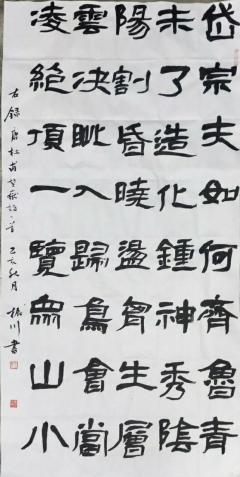 岱宗夫如何齊魯青
未了造化鍾神秀陰
陽割昏曉盪胷生層
雲决眦入歸鳥會當
凌絕頂一覽衆山小
右錄唐杜甫望嶽詩一首 己亥秋月 振川書